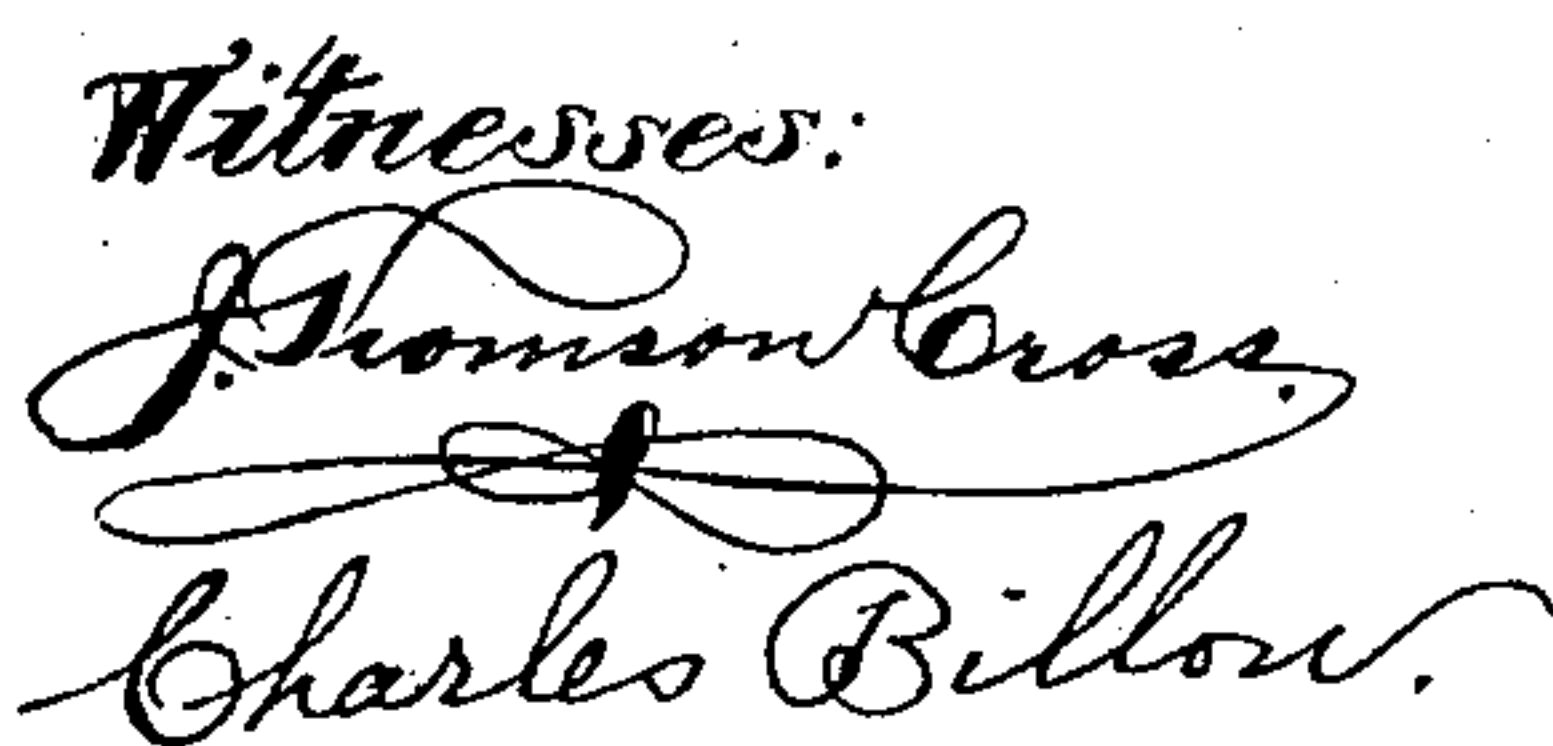 Witnesses:
J. Thomson Cross.
Charles Billow.